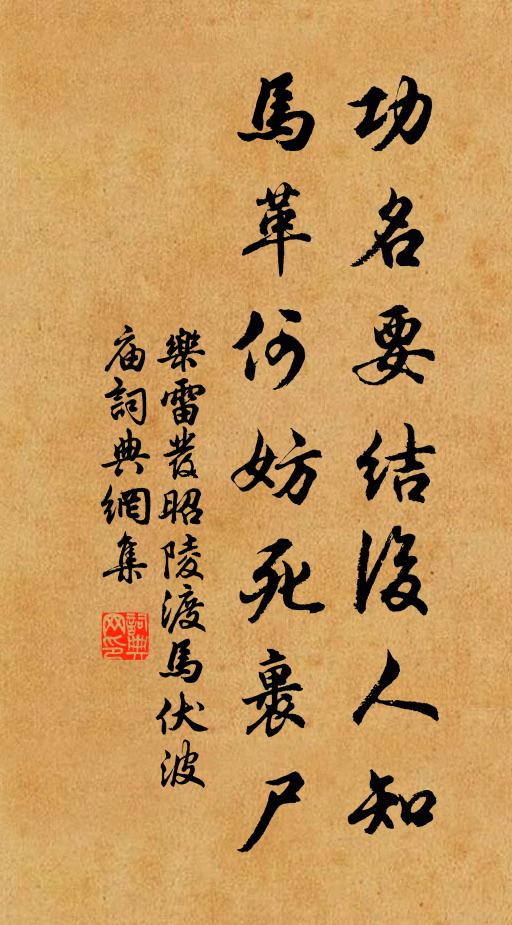 功名要結後人知
馬革何妨死裹尸
樂雷發昭陵渡馬伏波
庙詞典網集
詞典网印